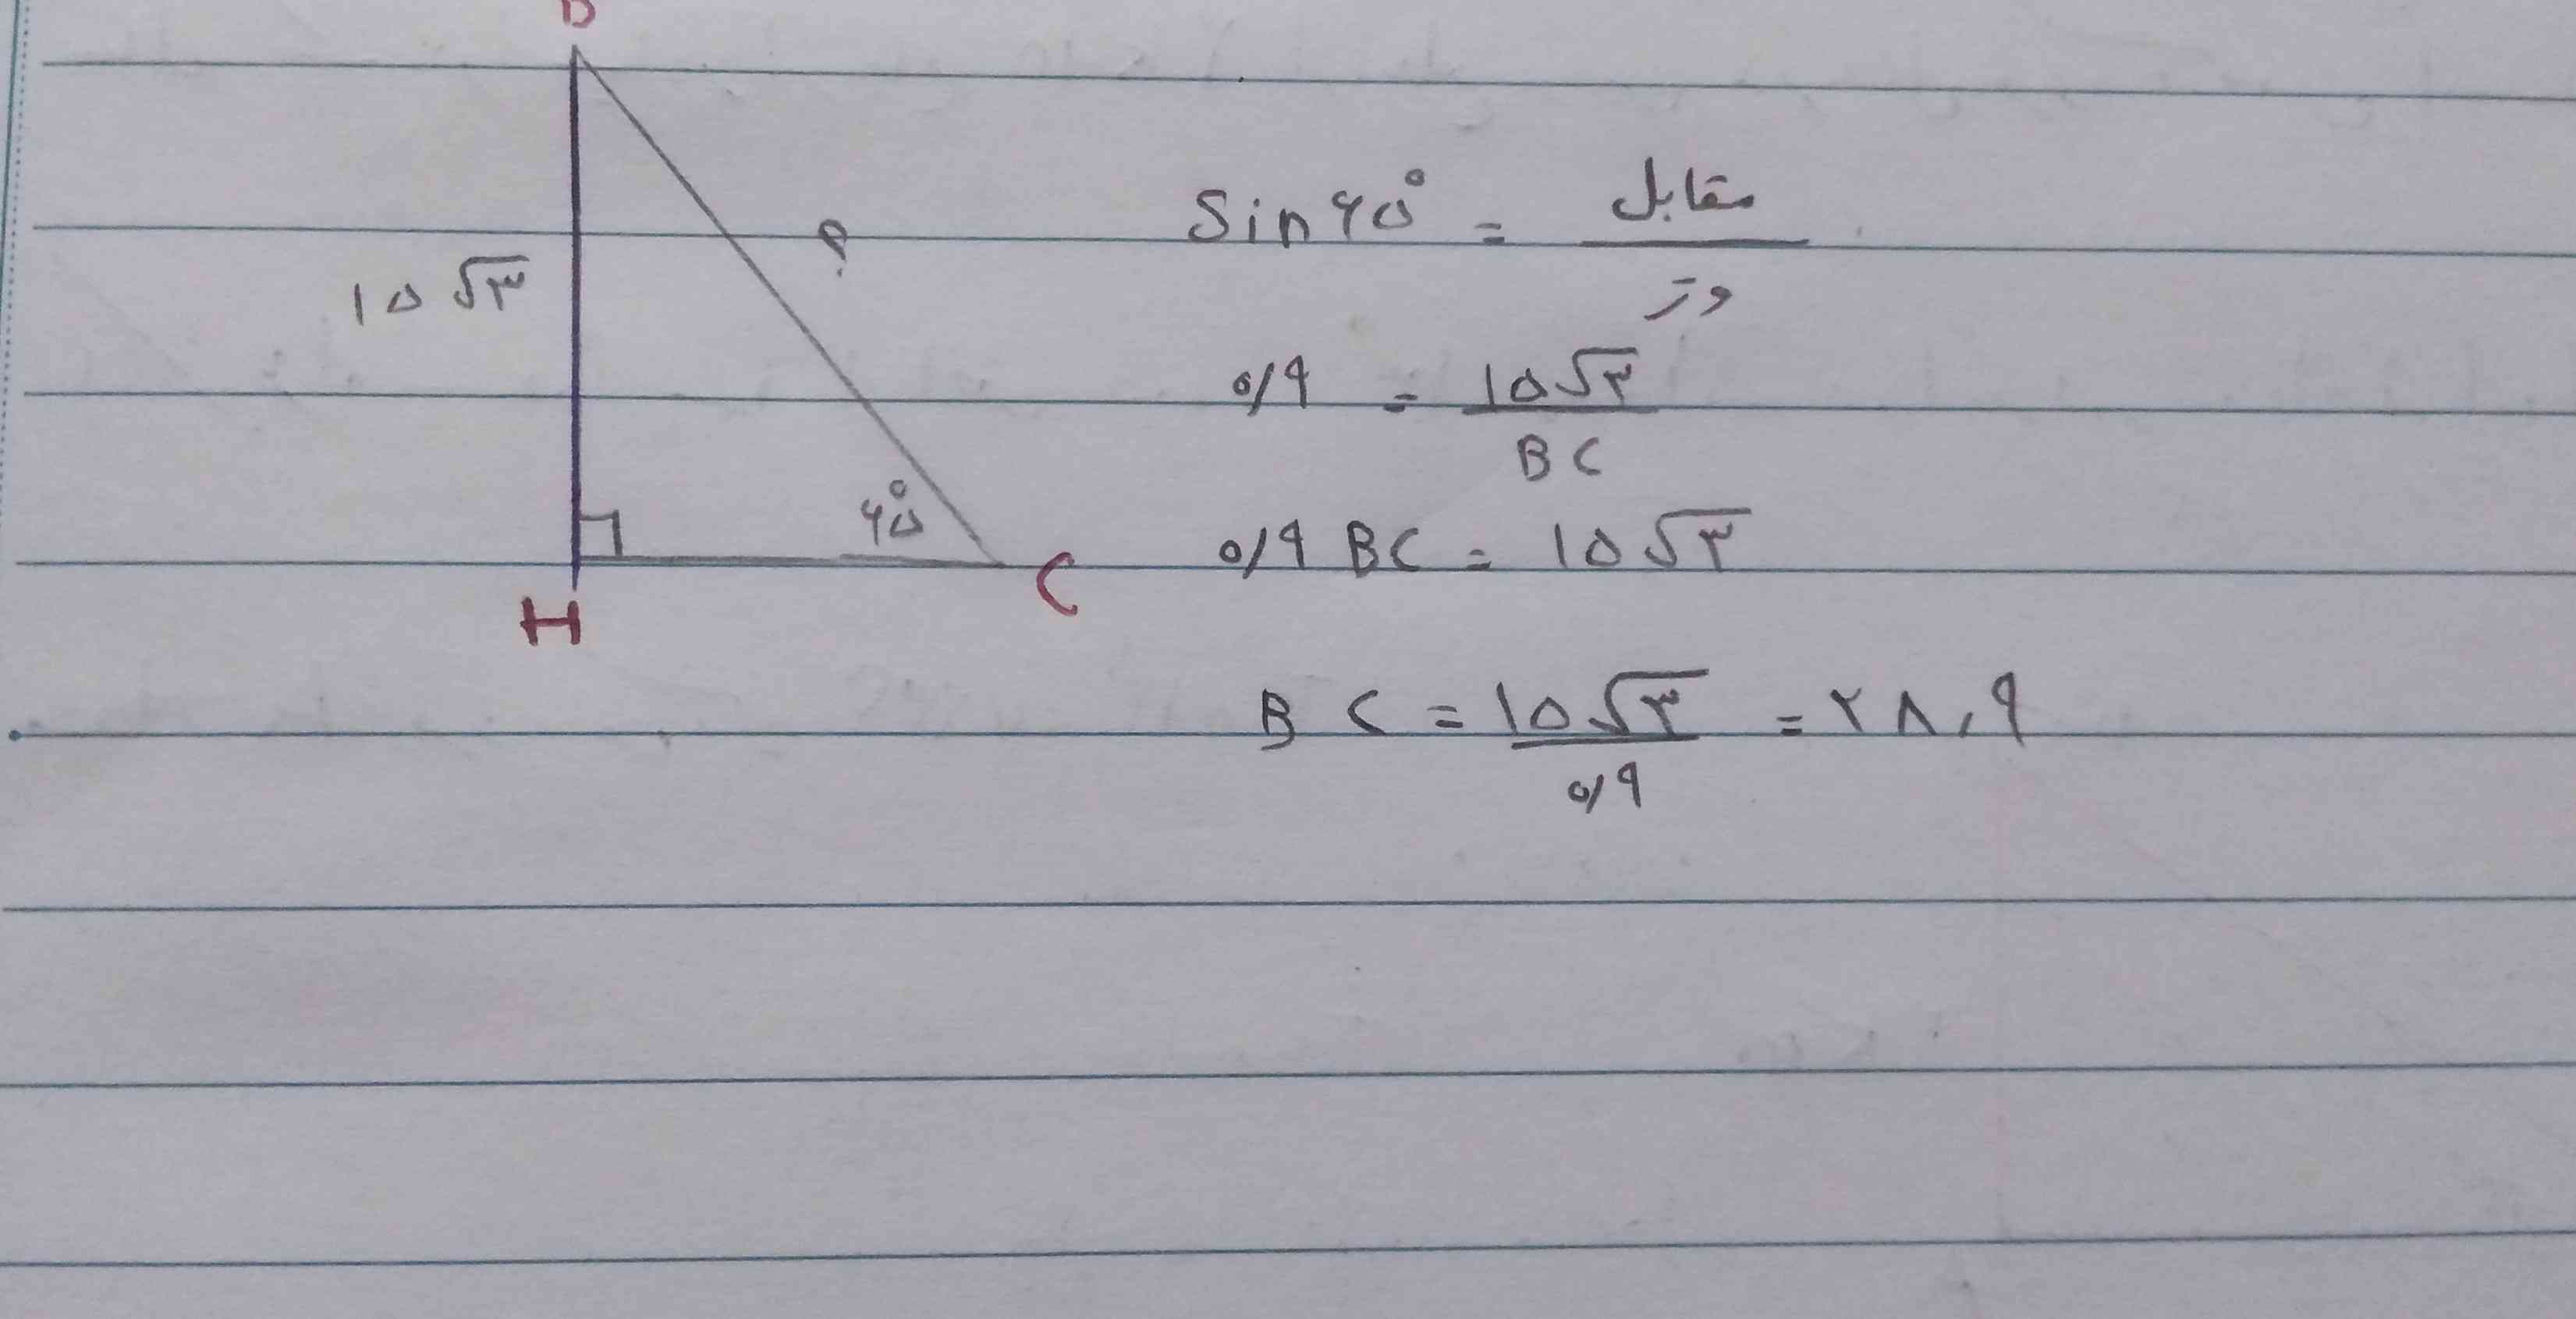 B
۱۵ √۳
؟
۶۵°
H
C
Sin ۶۵° = مقابل
وتر
۰/۹ = ۱۵√۳
BC
۰/۹ BC = ۱۵√۳
BC = ۱۵√۳ = ۲۸٫۹
۰/۹